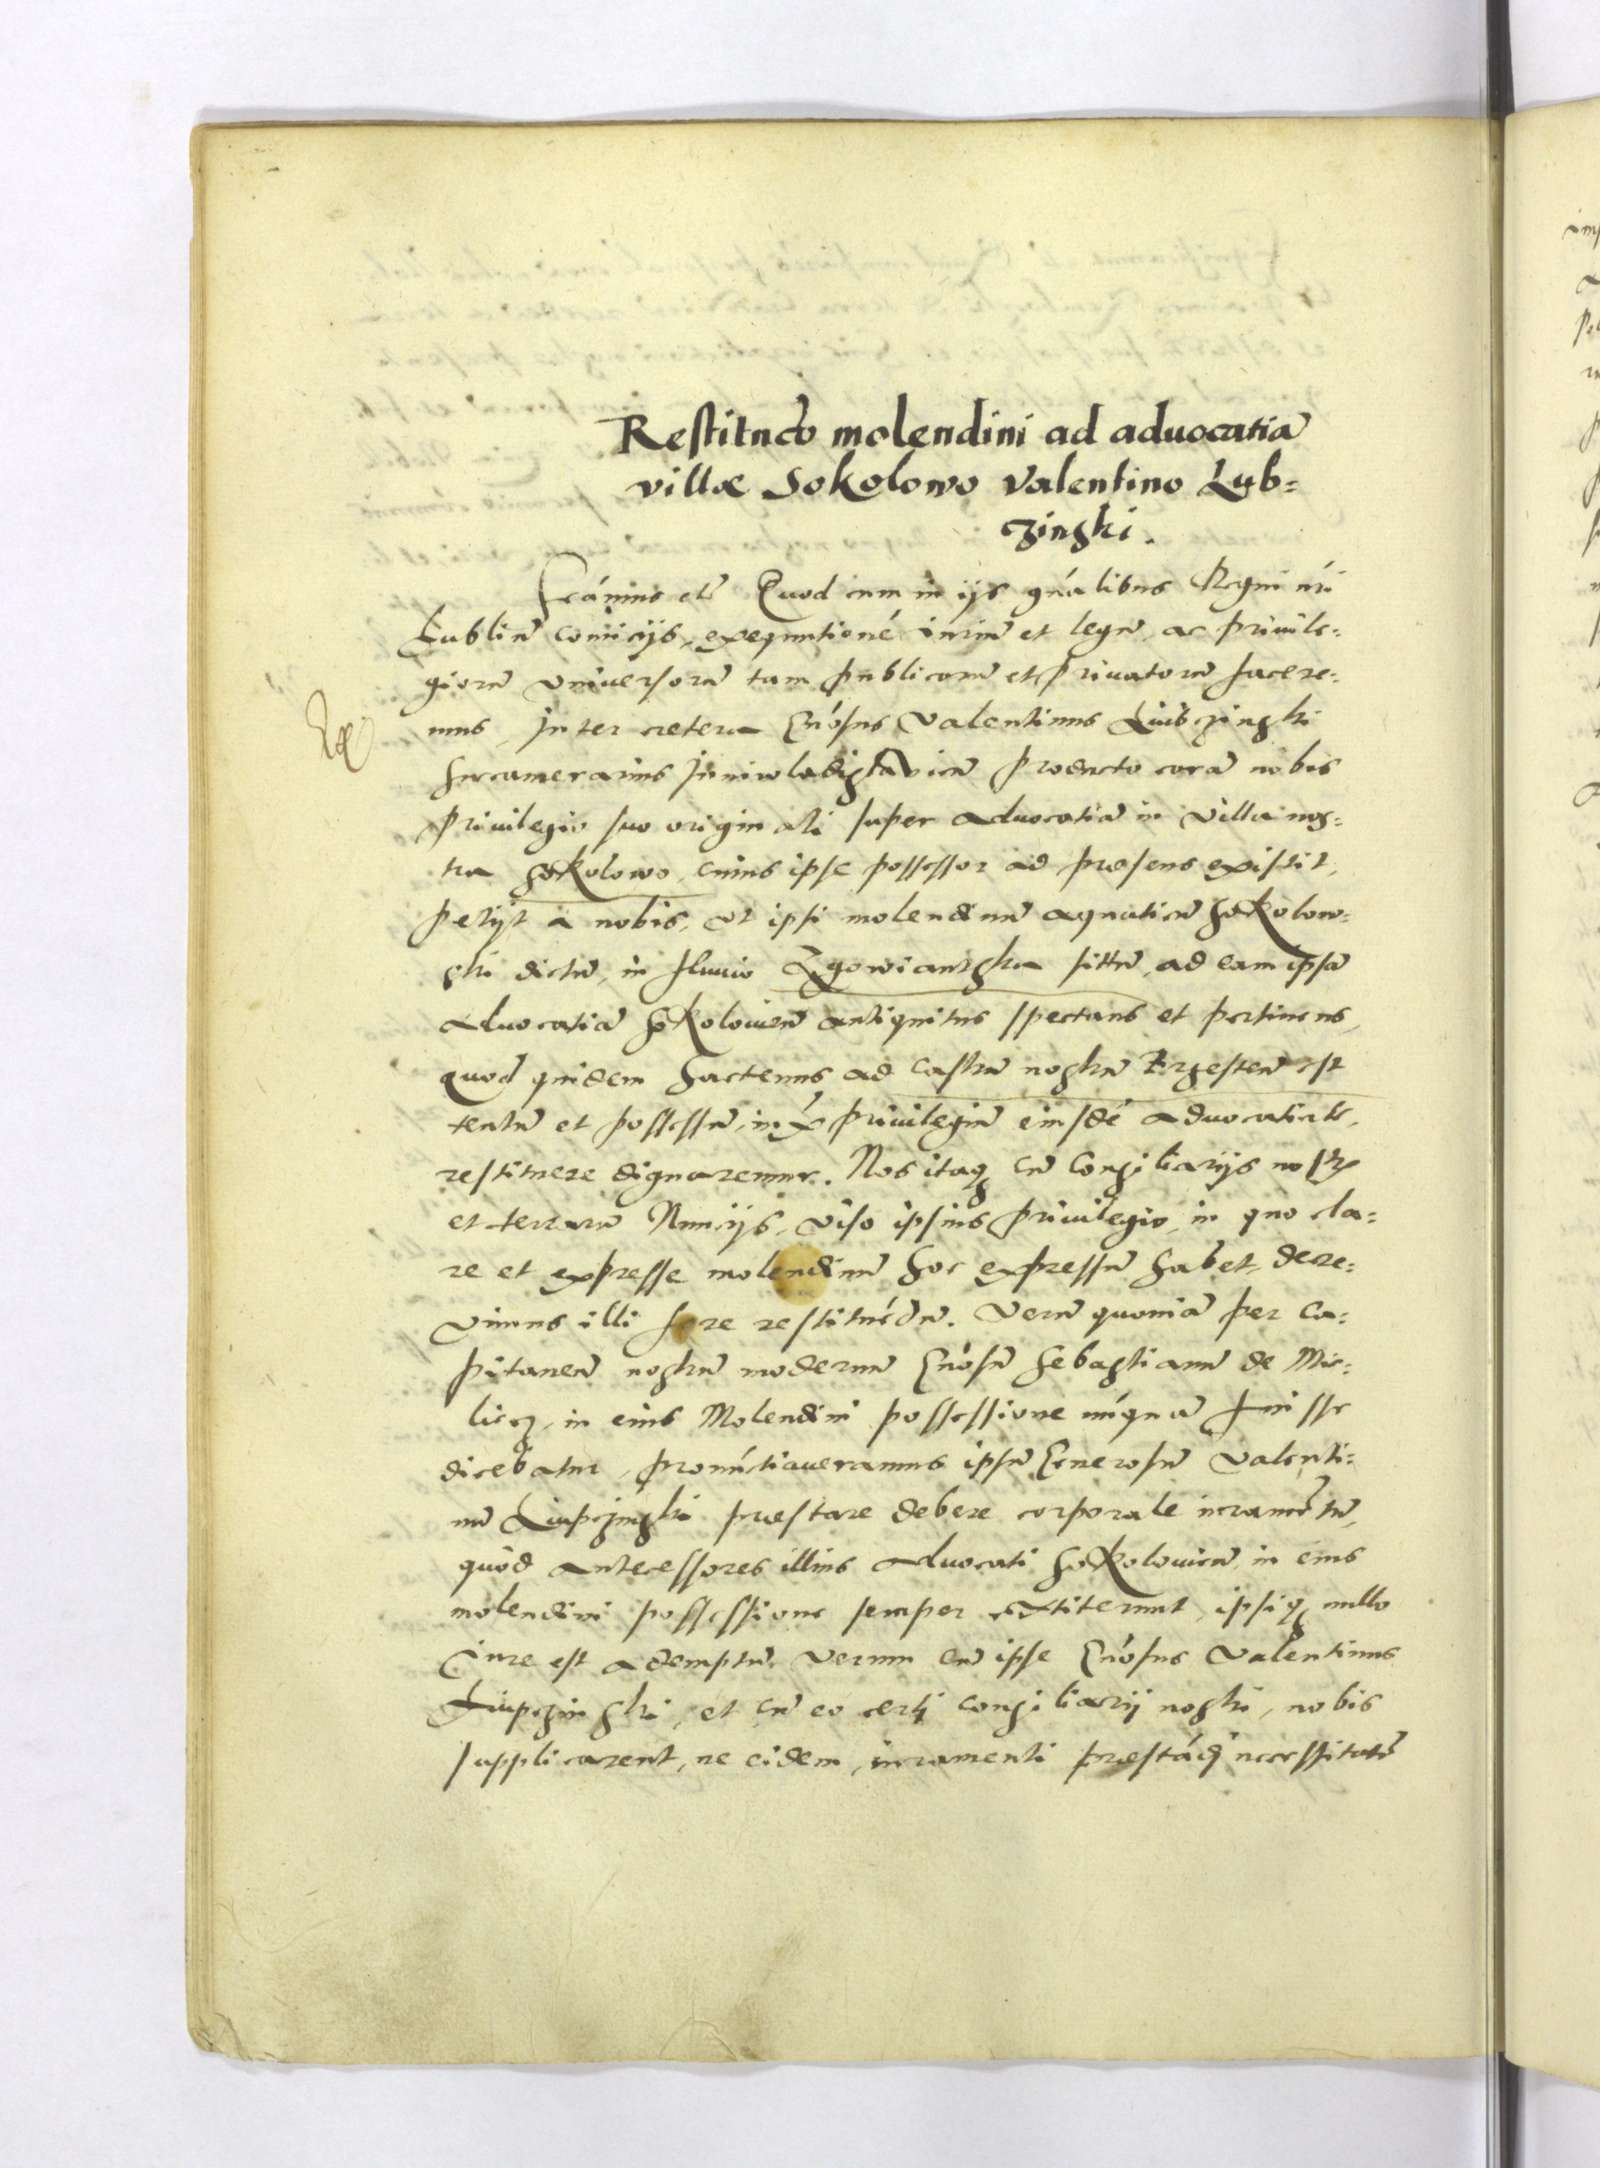 Restitucō molendini ad aduocatiā
villæ Sokolowo Valentino Lub=
czinski.
Quod cum in ijs gńalibus Regni nri
Lublineñ comicijs, exequutioné iuriū et legū, ac priuile=
giorū vniversorū tam publicorū et priuatorū facere=
mus, Inter cætera Gńosus Valentinus Liubczinski
Succamerarius Iuniwladislavieñ producto corā nobis
priuilegio suo originali super aduocatiā in villa nos=
tra Sokolowo, cuius ipse possessor ad præsens existit,
petijt a nobis, vt ipsi molendinū aquaticū Sokolow=
ski dictū, in fluuio Zgowiantzka sittū, ad eam ipsā
aduocatiā Sokolovieñ antiquitus spectans et pertinens,
quod quidem hactenus ad castrū nostrū Brzesteñ est
tentū et possessū, priuilegiū eiusdē aduocatiæ,
restituere dignaremur. Nos itaq3 cū consiliarijs nostris
et terrarū Nuncijs, viso ipsius priuilegio, in quo cla=
re et expresse molendinū hoc expressū habet, decre=
vimus illi fore restituédū. Verū quoniā per Ca=
pitaneū nostrū modernū Gńosū Sebastianū de Mie=
liecz, in eius Molendini possessione núquā fuisse
dicebatur, pronúctiaueramus ipsū Generosū Valenti=
nū Liupczinski præstare debere corporale iuramētū,
quòd antecessores illius aduocati Sokolovieñ in eius
molendini possessione semper extiterunt, ipsiq3 nullo
iure est ademptū. Verum cū ipse Gńosus Valentinus
Liupczinski, et cū eo certi consiliarij nostri, nobis
supplicarent, ne eidem, iuramenti præstádi necessitatē